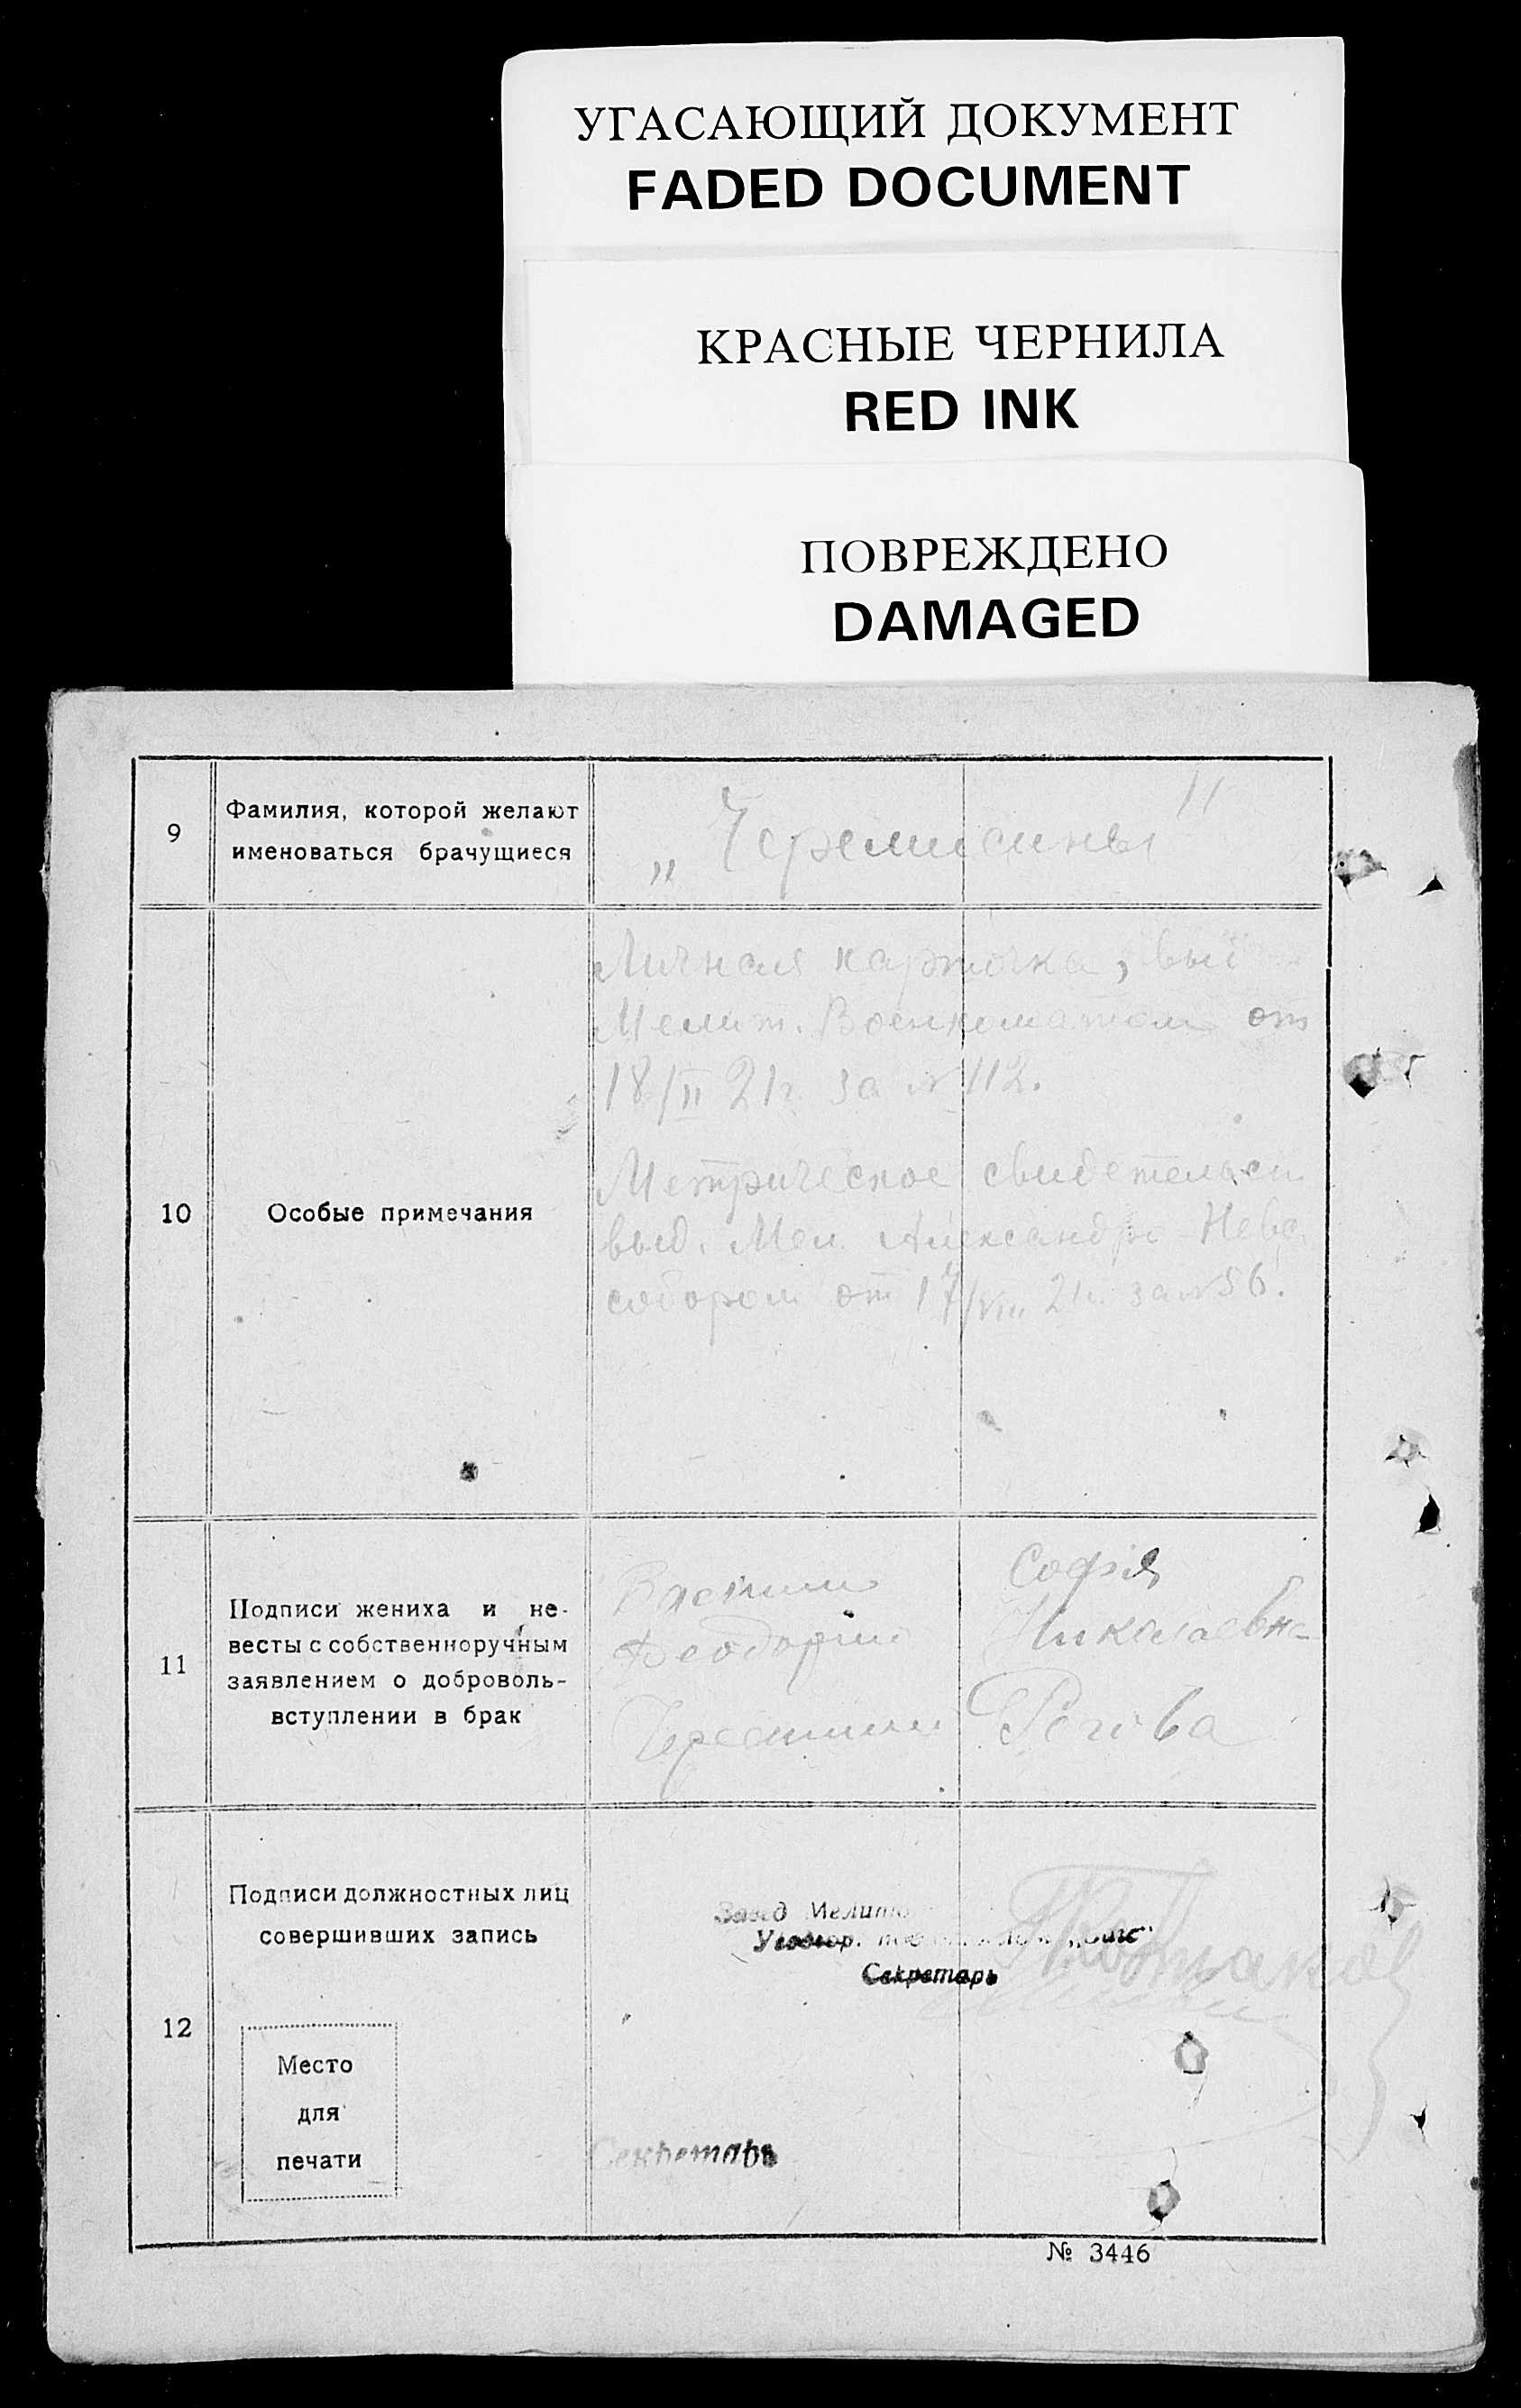 УГАСАЮЩИЙ ДОКУМЕНТ
FADED DOCUMENT
КРАСНЫЕ ЧЕРНИЛА
RED INK
ПОВРЕЖДЕНО
DAMAGED
9
Фамилия, которой желают
именоваться брачущиеся
„Черемисины"
10
Особые примечания
Личная карточка, выд
Мелит. Военкоматом от
18/II 21г. за № 112.
Метрическое свидетельст
выд. Мел. Александро-Невс.
собором от 17/VIII 21г. за № 56.
11
Подписи жениха и не-
весты с собственноручным
заявлением о доброволь-
вступлении в брак
София
Николаевна
Рогова
12
Подписи должностных лиц
совершивших запись
Завед Мелито
Секретарь
Место
для
печати
Секретарь
№ 3446